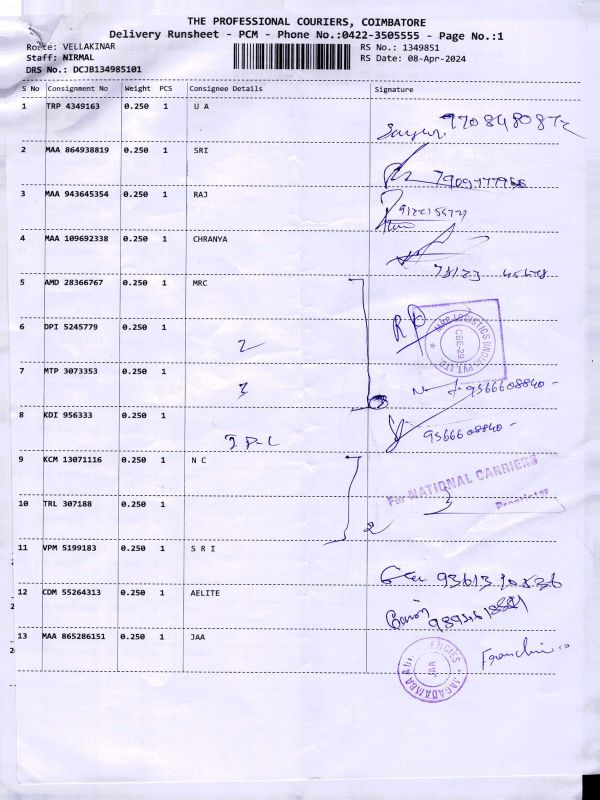 THE PROFESSIONAL COURIERS, COIMBATORE
Delivery Runsheet - PCM - Phone No.:0422-3505555 - Page No.:1
Route: VELLAKINAR RS No.: 1349851
Staff: NIRMAL RS Date: 08-Apr-2024
DRS No.: DCJB134985101
S No Consignment No Weight PCS Consignee Details Signature
1 TRP 4349163 0.250 1 U A
2 MAA 864938819 0.250 1 SRI
3 MAA 943645354 0.250 1 RAJ
4 MAA 109692338 0.250 1 CHRANYA
78123 45678
5 AMD 28366767 0.250 1 MRC
6 DPI 5245779 0.250 1
2
LOGISTICS INDIA PVT. LTD CBE-29
7 MTP 3073353 0.250 1
3 9566608840 -
3
8 KDI 956333 0.250 1
9566608840 -
9 KCM 13071116 0.250 1 N C
For NATIONAL CARRIERS
Proprietor
10 TRL 307188 0.250 1
2
11 VPM 5199183 0.250 1 S R I
12 CDM 55264313 0.250 1 AELITE
13 MAA 865286151 0.250 1 JAA
JAGADAMBA AGENCIES